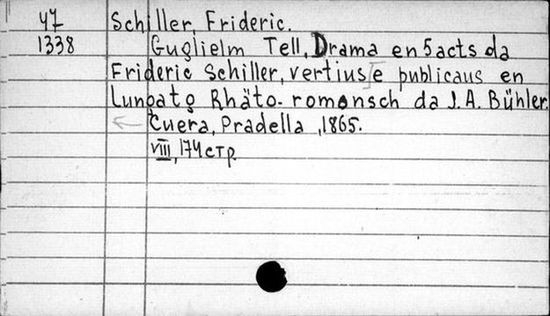 47 Schiller, Frideric.
1338 Guglielm Tell, Drama en 5 acts da
Frideric Schiller, vertius e publicaus en
Lungatg Rhäto-romonsch da J. A. Bühler.
Cuera, Pradella, 1865.
VIII, 174 стр.